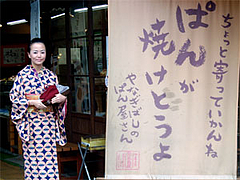 ちょっと寄っていかんね
ぱんが
焼けとうよ
やなぎばしの
ぱん屋さん